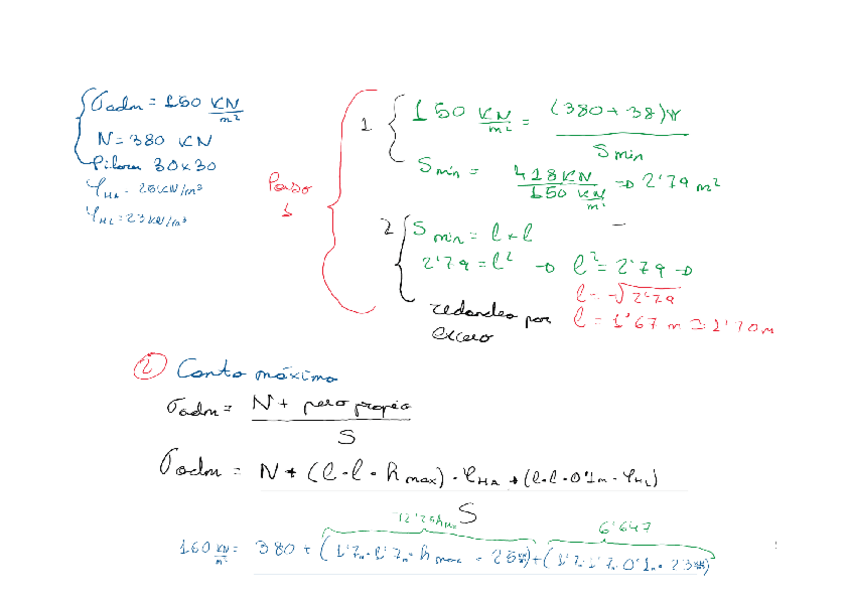 σadm = 150 KN/m²
N = 380 KN
Pilares 30x30
γHA = 25 KN/m³
γHL = 23 KN/m³
Paso 1
1
150 KN/m² = (380 + 38)
S min
S min = 418 KN / 150 KN/m² => 2'79 m²
2
S min = l * l
2'79 = l² -> l² = 2'79 ->
l = √2'79
redondeo por exceso
l = 1'67 m ≈ 1'70 m
② Canto máximo
σadm = N + peso propio
S
σadm = N + (l · l · h max) · γHA + (l · l · 0'1m · γHL)
S
72'25 hmax
6'647
150 KN/m² = 380 + (1'7m · 1'7m · h max · 25 KN/m³) + (1'7m · 1'7m · 0'1m · 23 KN/m³)